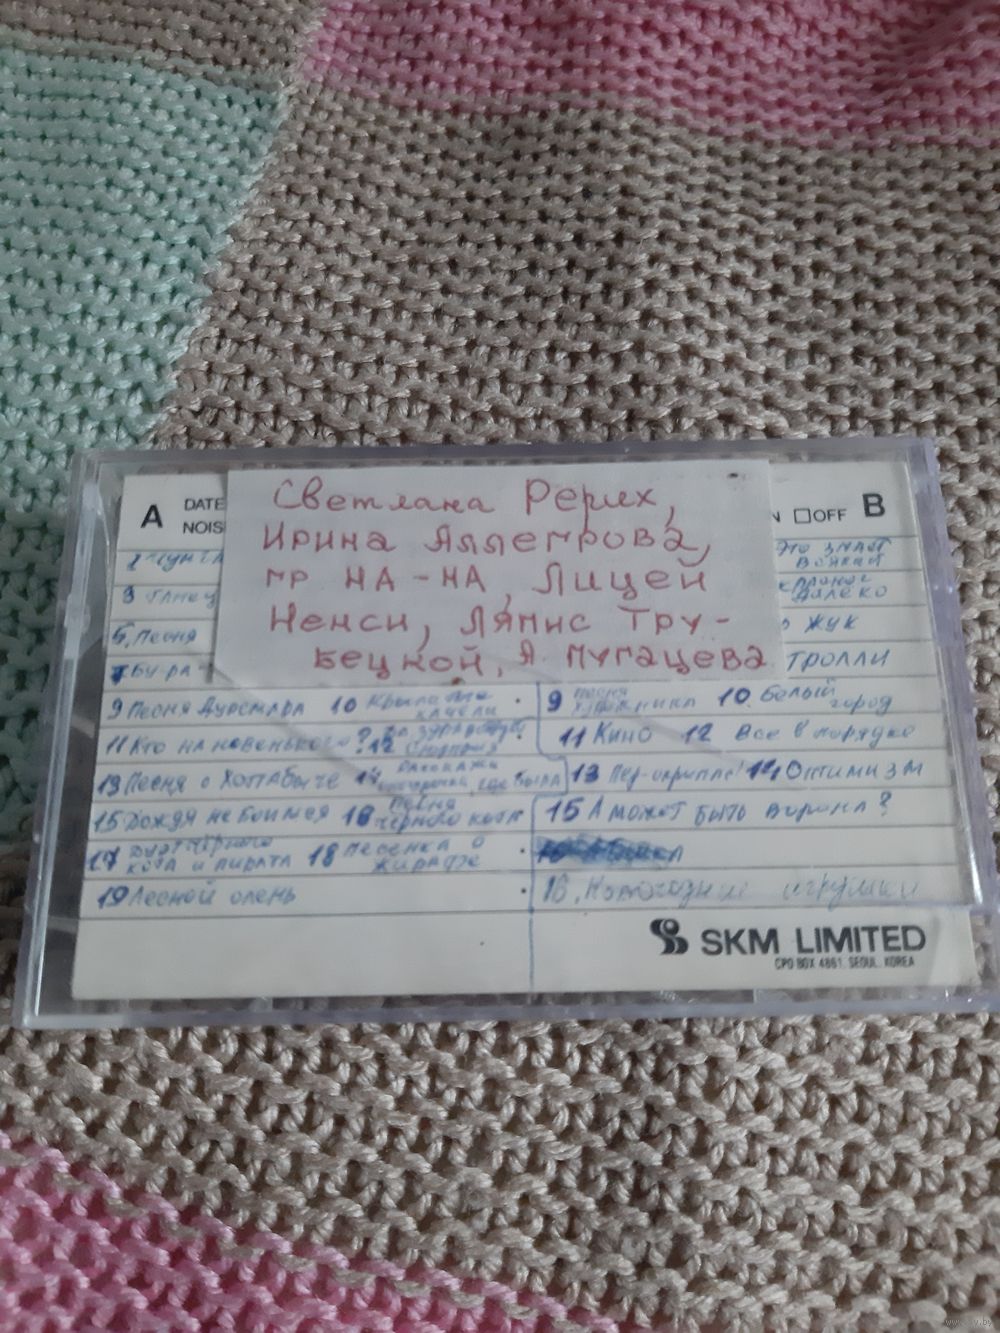 A
DATE
Светлана Рерих,
Ирина Аллегрова,
гр НА-НА, Лицей
Ненси, Ляпис Тру-
бецкой, А Пугачева
OFF B
Это знает
всякий
далеко
3 танец
5, Песня
жук
тролли
9 Песня Дуремара 10 Крылатые
качели
11 Кто на новенького?
13 Песня о Хоттабыче 14 Расскажи
снегурочка, где была
15 Дождя не боимся 16 Песня
черного кота
17 Дуэт чёрного
кота и пирата 18 песенка о
жирафе
19 Лесной олень
9 песня
художника 10. белый
город
11 Кино 12 все в порядке
13 14 Оптимизм
15 А может быть ворона?
18. Новогодние игрушки
SKM LIMITED
CPO BOX 4861, SEOUL, KOREA